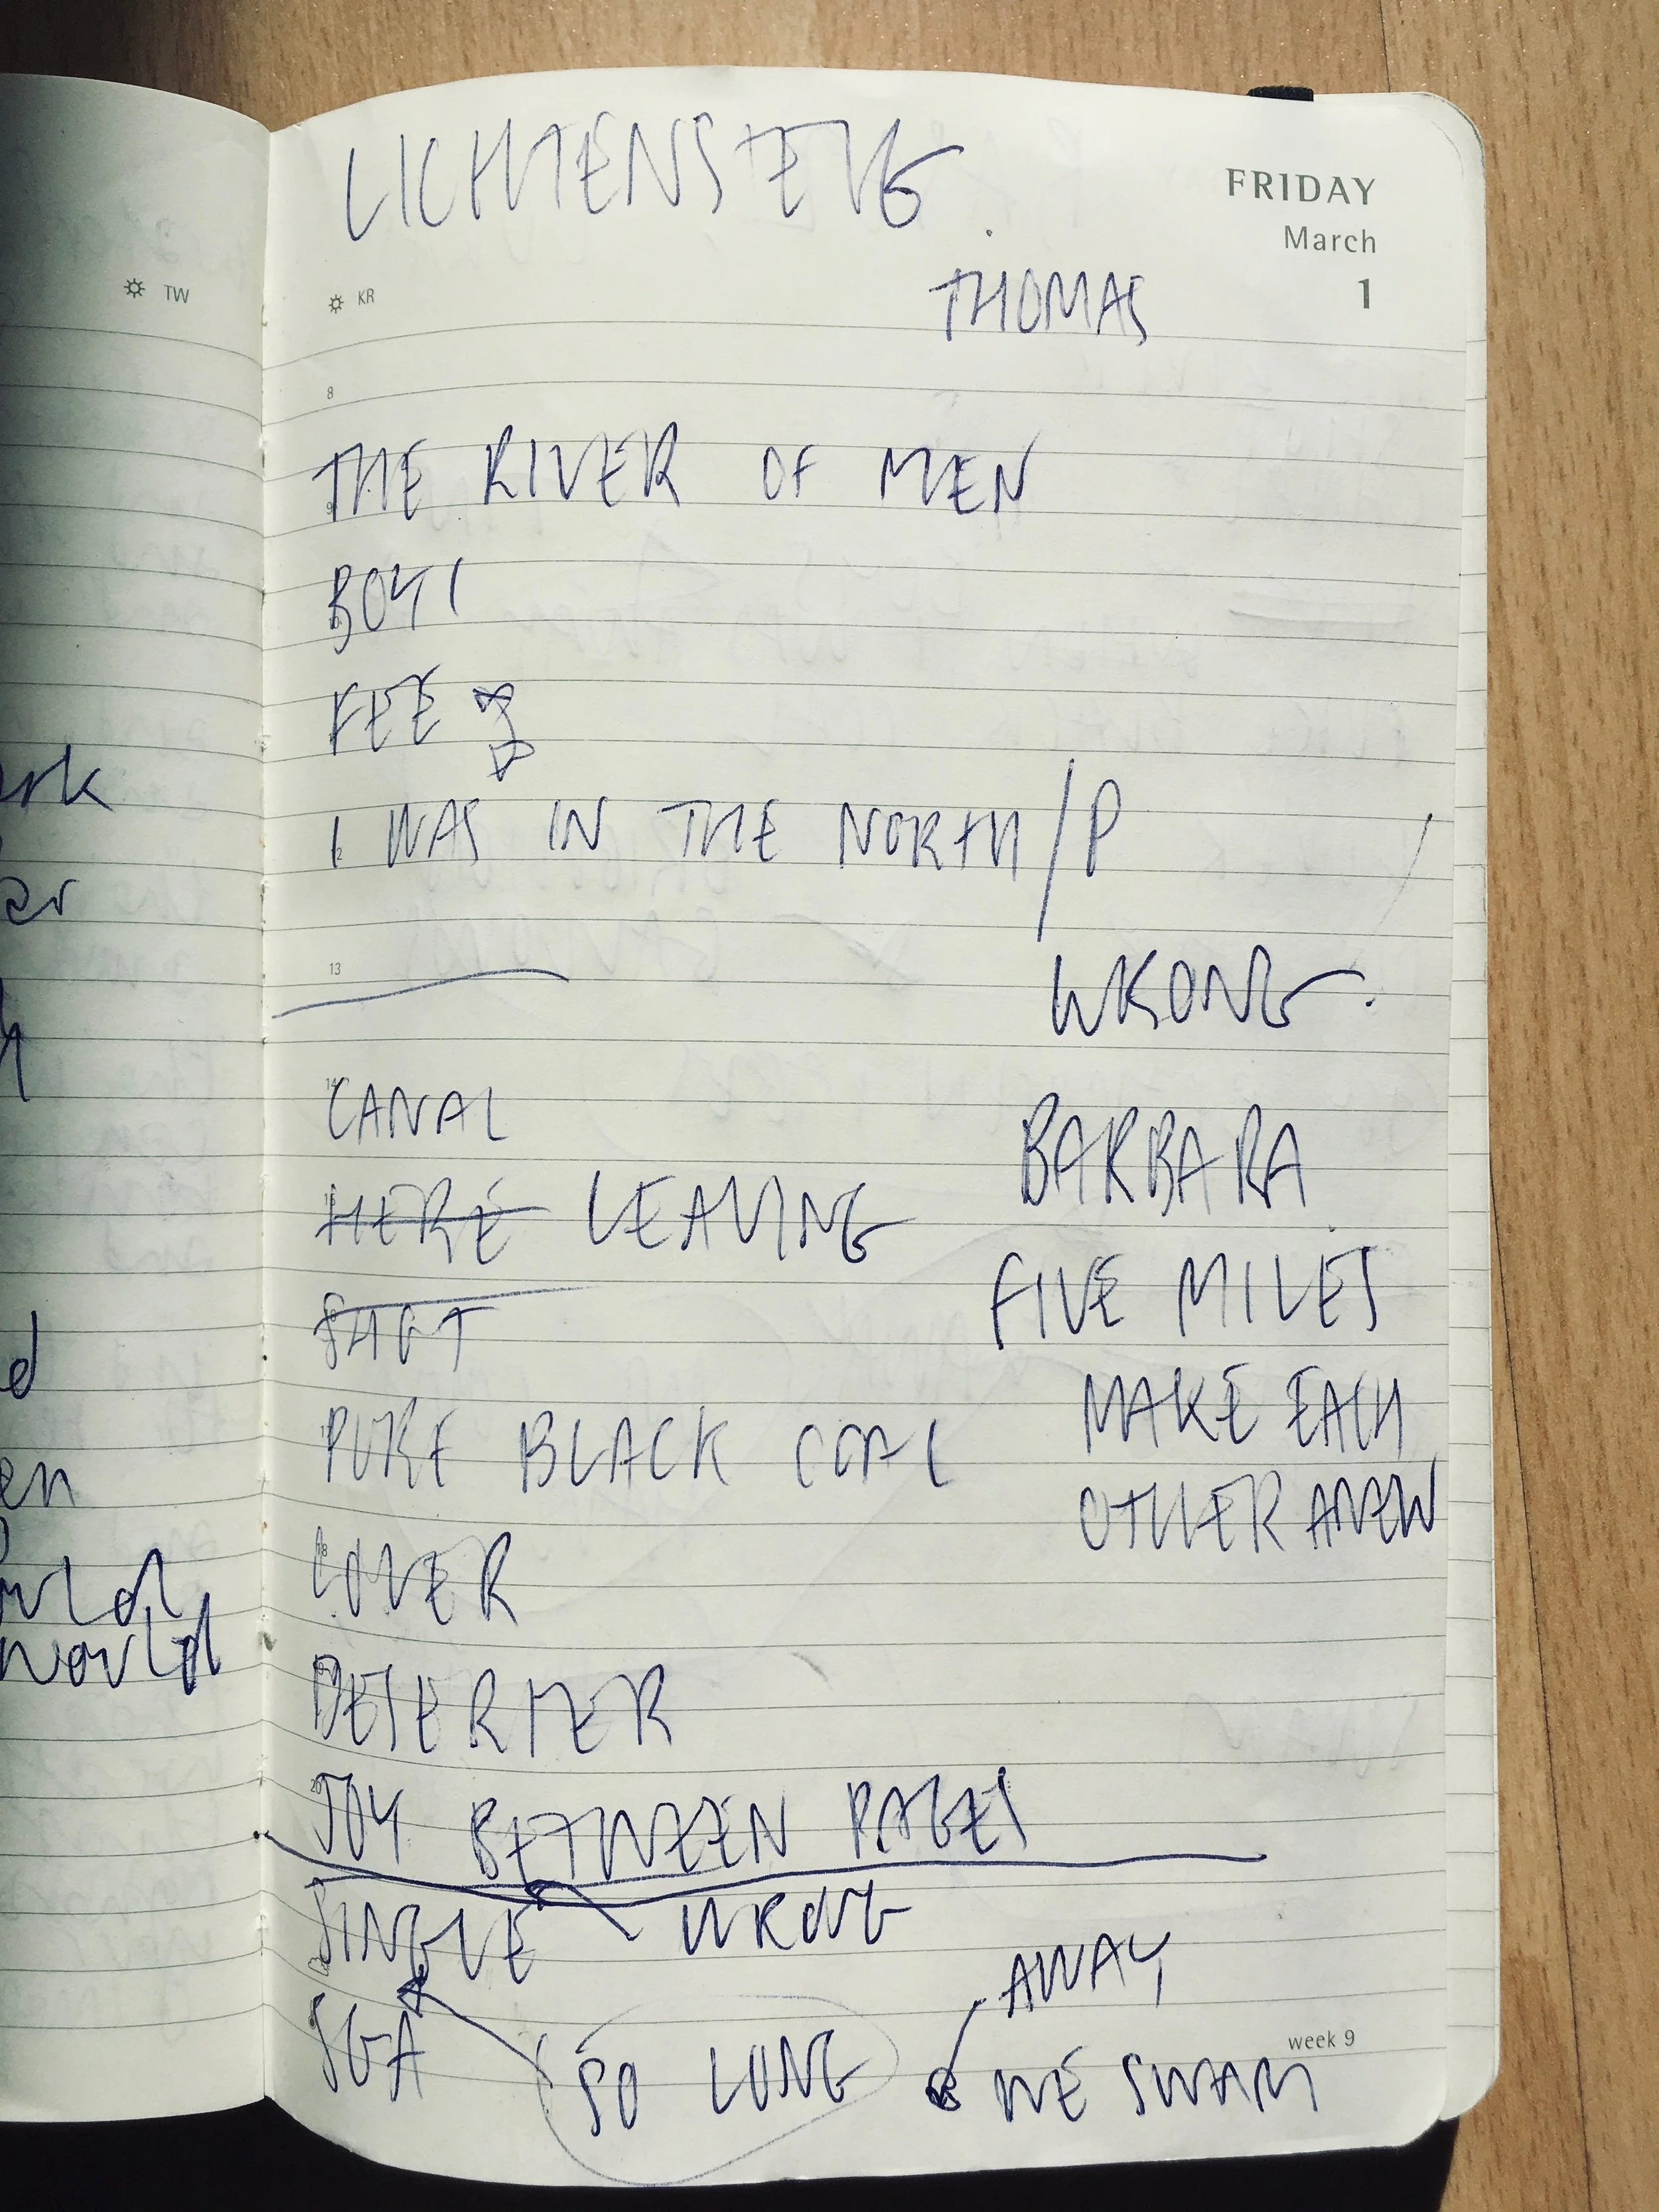 LICHTENSTEIG
FRIDAY
March
1
THOMAS
TW
KR
8
THE RIVER OF MEN
9
BOY I
FEE
I WAS IN THE NORTH / P
13
WRONG.
14
CANAL
BARBARA
15
HERE LEAVING
FIVE MILES
SHOT
MAKE EACH
PURE BLACK COAL
OTHER ANEW
18
LOVER
DESERTER
20
JOY BETWEEN PAGES
SINGLE WRONG
AWAY
SGA SO LONG WE SWAM
week 9
ark
er
h
d
en
world